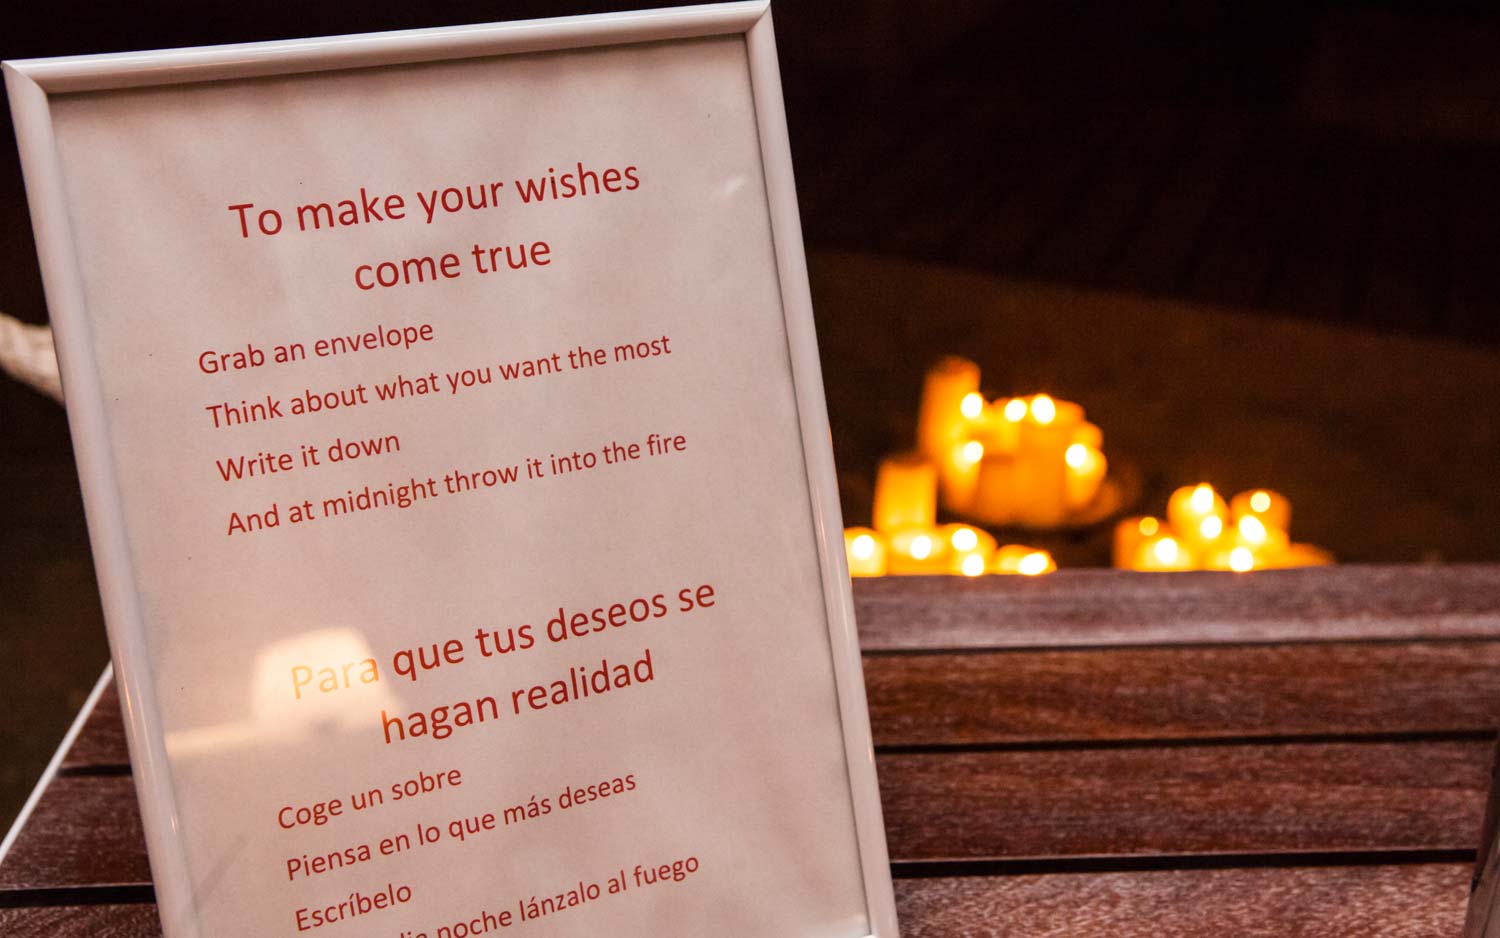 To make your wishes
come true
Grab an envelope
Think about what you want the most
Write it down
And at midnight throw it into the fire
Para que tus deseos se
hagan realidad
Coge un sobre
Piensa en lo que más deseas
Escríbelo
noche lánzalo al fuego